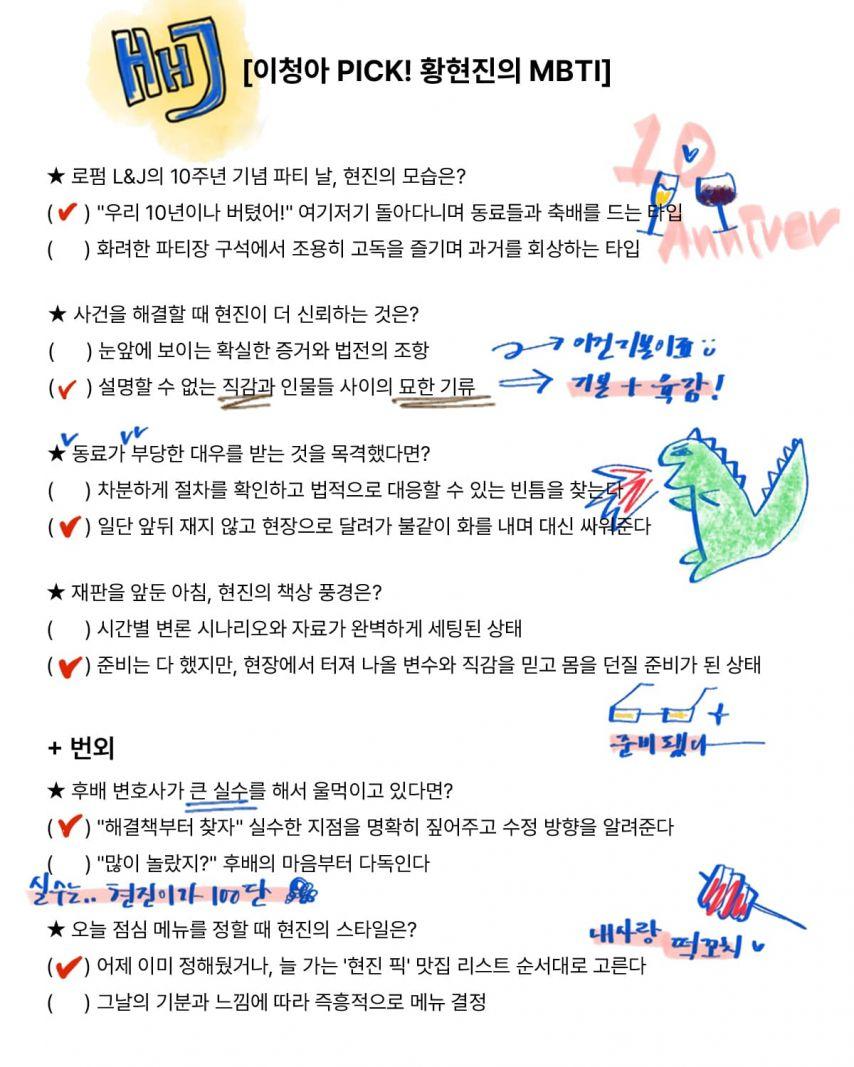 HHJ
[이청아 PICK! 황현진의 MBTI]
10
★ 로펌 L&J의 10주년 기념 파티 날, 현진의 모습은?
(✔) "우리 10년이나 버텼어!" 여기저기 돌아다니며 동료들과 축배를 드는 타입
Anniver
( ) 화려한 파티장 구석에서 조용히 고독을 즐기며 과거를 회상하는 타입
★ 사건을 해결할 때 현진이 더 신뢰하는 것은?
( ) 눈앞에 보이는 확실한 증거와 법전의 조항
→ 이건 기본이죠
(✔) 설명할 수 없는 직감과 인물들 사이의 묘한 기류
⇒ 기본 + 육감!
★ 동료가 부당한 대우를 받는 것을 목격했다면?
( ) 차분하게 절차를 확인하고 법적으로 대응할 수 있는 빈틈을 찾는다
(✔) 일단 앞뒤 재지 않고 현장으로 달려가 불같이 화를 내며 대신 싸워준다
★ 재판을 앞둔 아침, 현진의 책상 풍경은?
( ) 시간별 변론 시나리오와 자료가 완벽하게 세팅된 상태
(✔) 준비는 다 했지만, 현장에서 터져 나올 변수와 직감을 믿고 몸을 던질 준비가 된 상태
준비됐다
+ 번외
★ 후배 변호사가 큰 실수를 해서 울먹이고 있다면?
(✔) "해결책부터 찾자" 실수한 지점을 명확히 짚어주고 수정 방향을 알려준다
( ) "많이 놀랐지?" 후배의 마음부터 다독인다
실수는.. 현진이가 100단
★ 오늘 점심 메뉴를 정할 때 현진의 스타일은?
내사랑 떡꼬치
(✔) 어제 이미 정해뒀거나, 늘 가는 '현진 픽' 맛집 리스트 순서대로 고른다
( ) 그날의 기분과 느낌에 따라 즉흥적으로 메뉴 결정